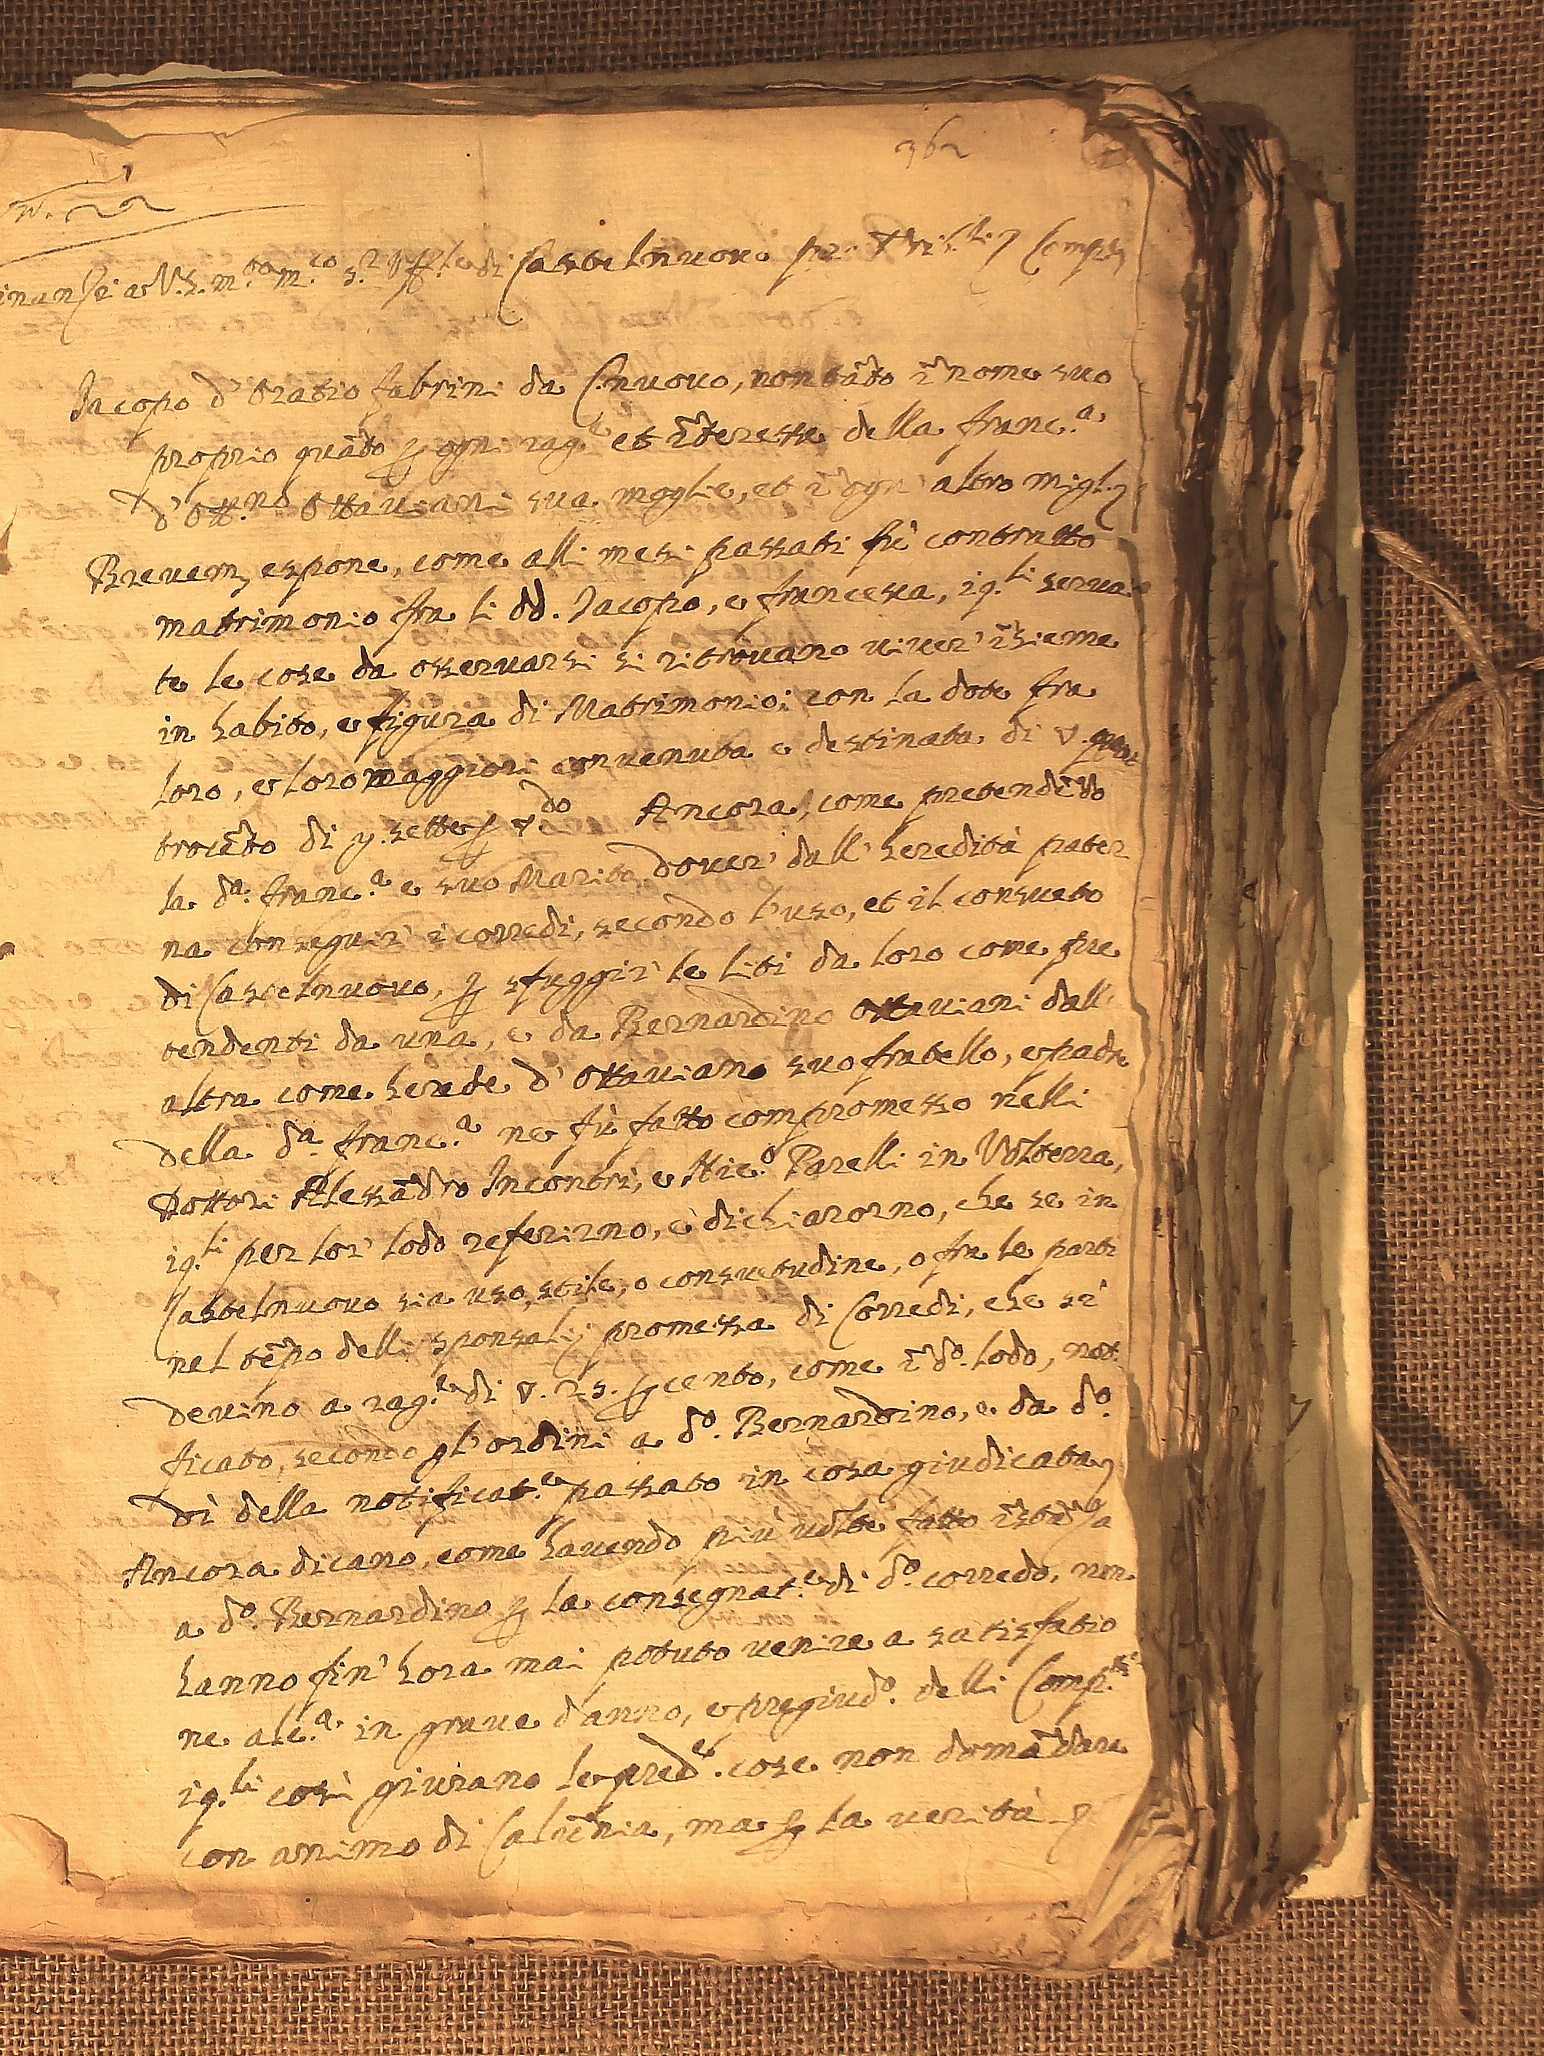 362
inunzi a V.S. m.to m.co s.r di Castelnuovo Comp
Jacopo d'Oratio fabrini da C.nuovo, non tãto ĩ nome suo
proprio quãto ꝑ ogni rag.e et ĩteresse della franc.a
d'Ott.no Ottaviani sua moglie, et ĩ ogn' altro migl.
Brevem. espone, come alli mesi passati fù contratto
matrimonio fra li dd. Jacopo, e francesca, i q.li serva
te le cose da osservarsi si ritrovano viver' ĩsieme
in habito, e figura di Matrimonio; con la dote fra
loro, e loro maggiori convenuta e destinata di v.
trocẽto di y. sette ꝑ v.do Ancora, come pretendẽdo
la d.a franc.a e suo Marito dover' dall' heredità pater
na conseguir' i corredi, secondo l'uso, et il consueto
di Castelnuovo, ꝑ sfuggir' le liti da loro come pre
tendenti da una, e da Bernardino Ottaviani dall'
altra come herede d'Ottaviano suo fratello, e padre
della d.a franc.a ne fù fatto compromesso nelli
Dottori Alessãdro Incontri, e Hie.o Parelli in Volterra,
i q.li per lor' lodo referirno, e dichiarorno, che se in
Castelnuovo sia uso, stile, o consuetudine, o fra le parti
nel tẽpo delli sponsalij promessa di Corredi, che si
devino a rag.e di v. 25. ꝑ cento, come ĩ d.o lodo, noti
ficato, secondo gl'ordini a d.o Bernardino, e da d.o
dì della notificat.e passato in cosa giudicata
Ancora dicano, come havendo più volte fatto ĩstãza
a d.o Bernardino ꝑ la consegnat.e di d.o corredo, non
hanno fin' hora mai potuto venire a satisfatio
ne alc.a in grave danno, e pregiud.o delli Comp.ti
i q.li così giurano le pred.e cose non domãdare
con animo di Calũnia, ma ꝑ la verità